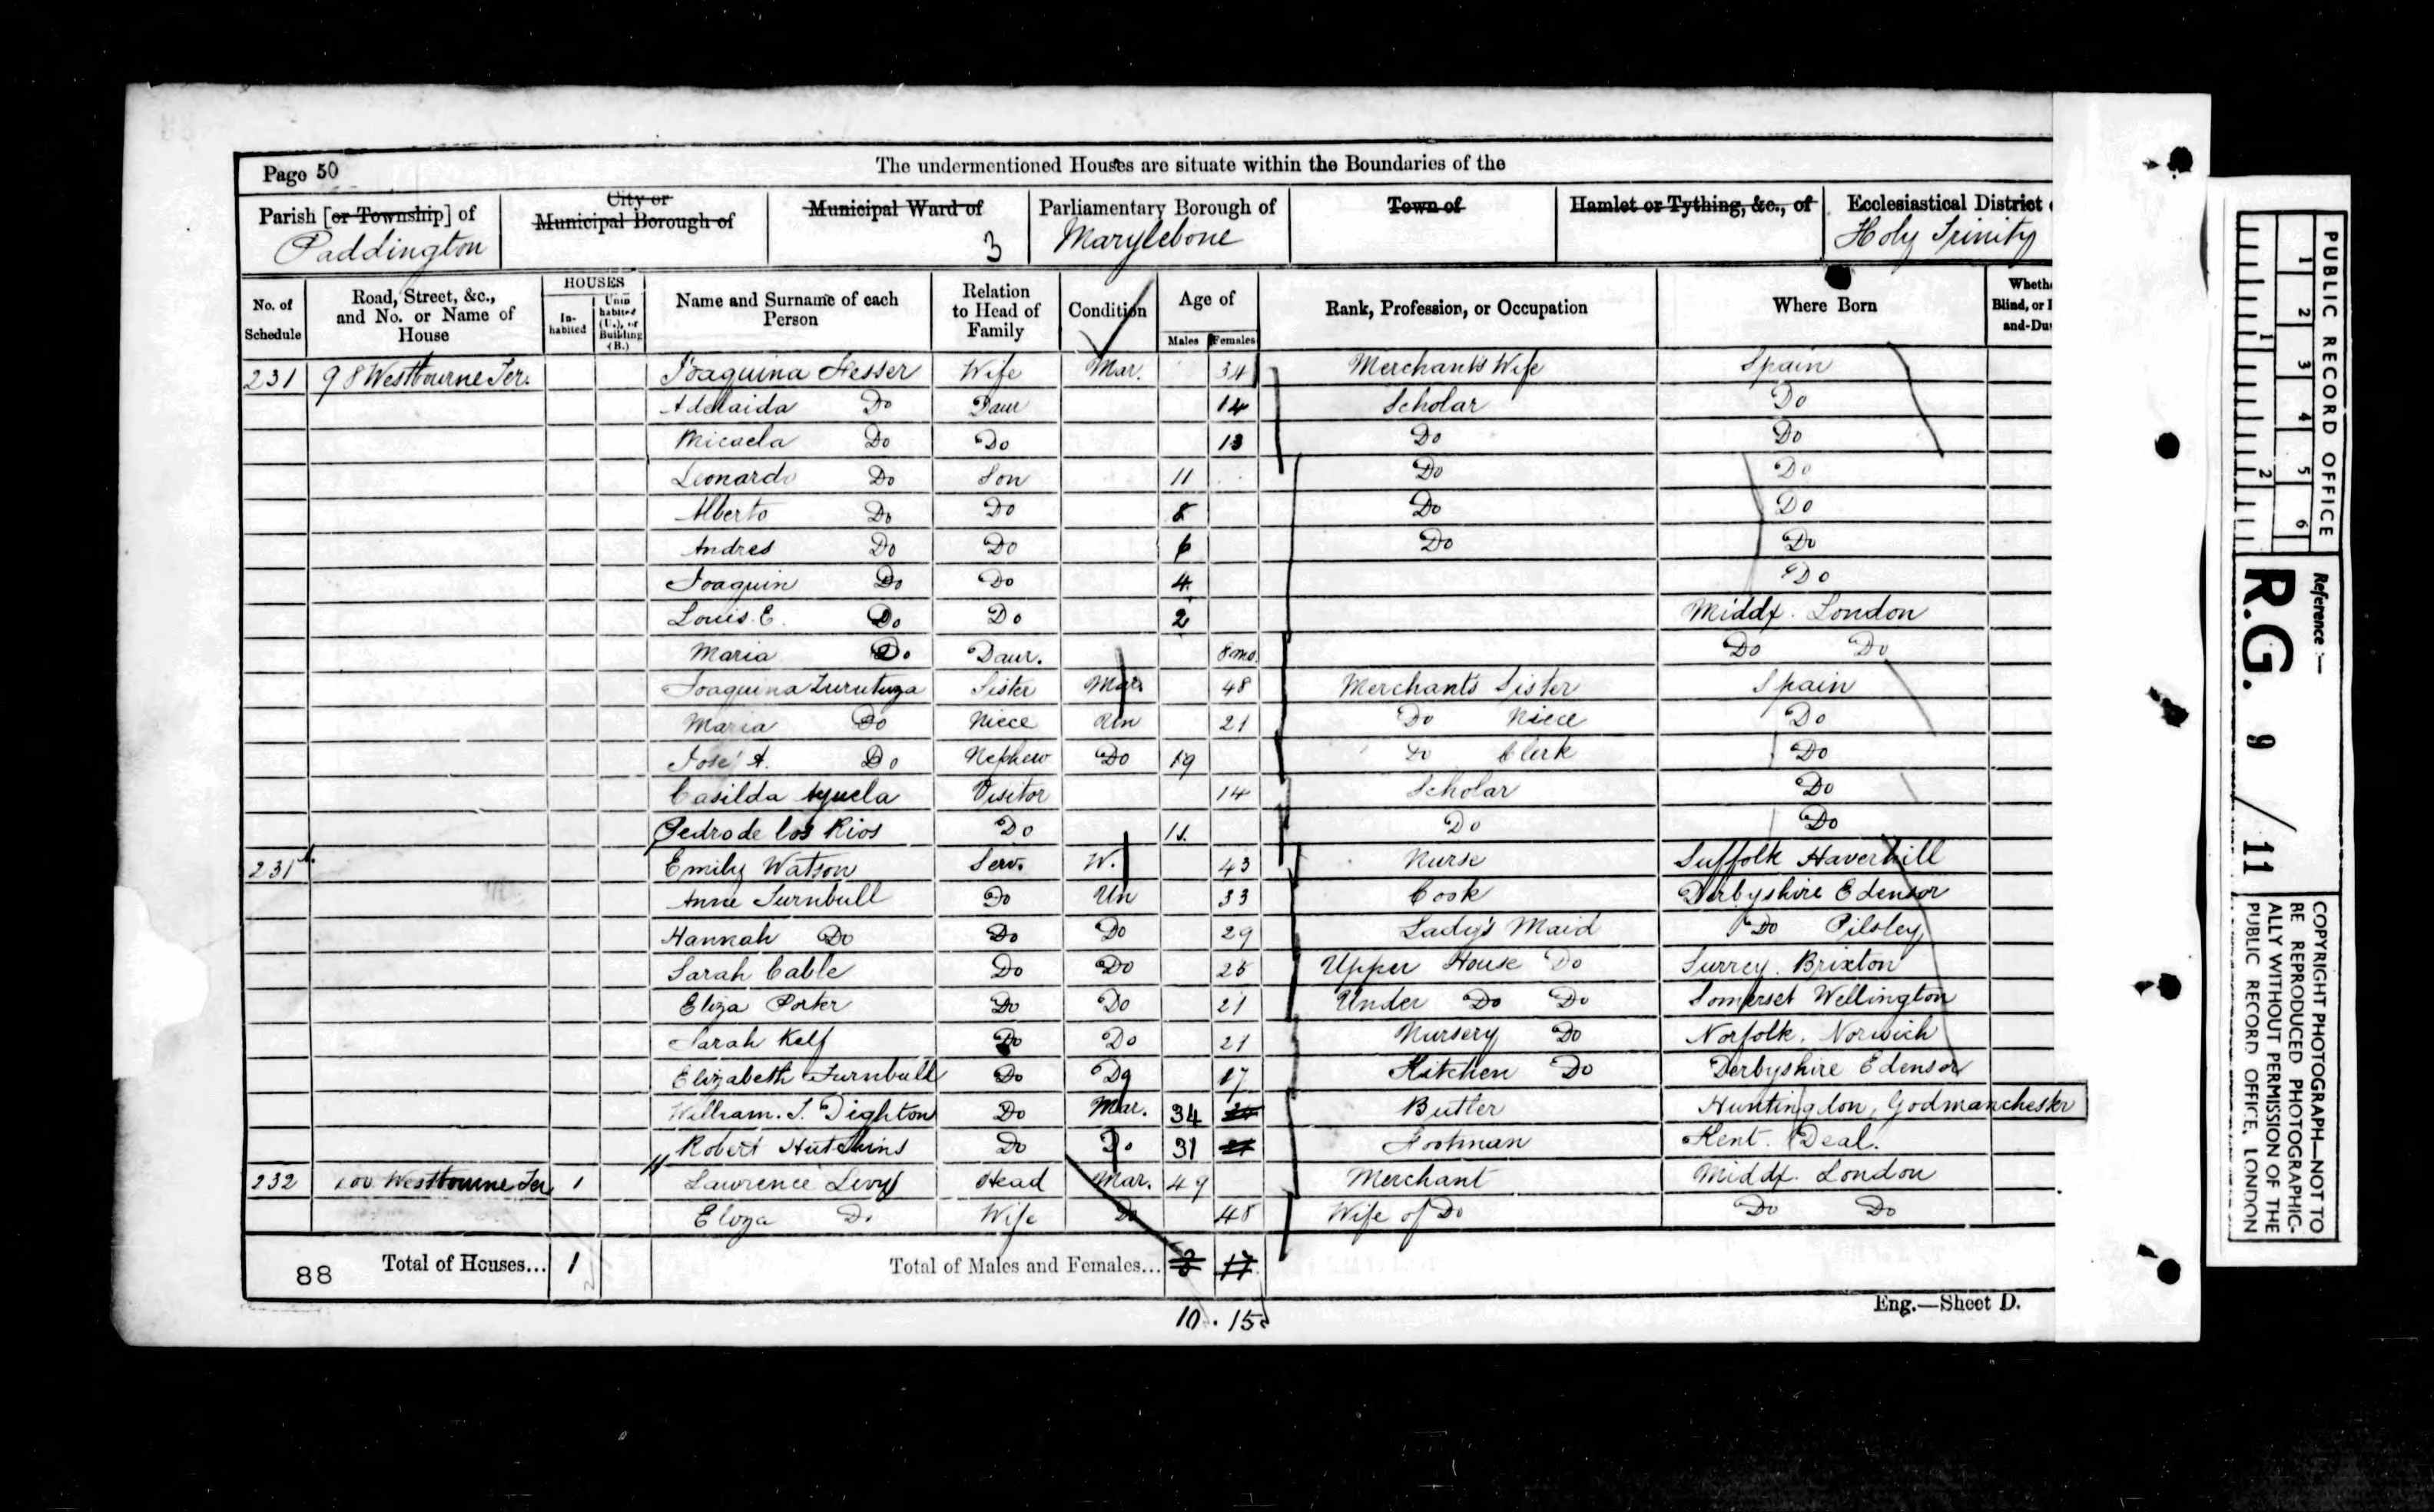 Page 50
The undermentioned Houses are situate within the Boundaries of the
Parish [or Township] of Paddington
City or Municipal Borough of
Municipal Ward of 3
Parliamentary Borough of Marylebone
Town of
Hamlet or Tything, &c., of
Ecclesiastical District Holy Trinity
No. of Schedule
Road, Street, &c., and No. or Name of House
HOUSES
In-habited
Unin habited (U.), or Building (B.)
Name and Surname of each Person
Relation to Head of Family
Condition
Age of
Males Females
Rank, Profession, or Occupation
Where Born
231 98 Westbourne Ter. Joaquina Wife Mar. 34 Merchants Wife Spain
Adelaida Do Daur 14 Scholar Do
Micaela Do Do 13 Do Do
Leonardo Do Son 11 Do Do
Alberto Do Do 8 Do Do
Andres Do Do 6 Do Do
Joaquin Do Do 4 Do
Louis E. Do Do 2 Middx. London
Maria Do. Daur. 8 mo. Do Do
Joaquina Zurutuza Sister Mar. 48 Merchants Sister Spain
Maria Do Niece Un 21 Do Niece Do
José A. Do Nephew Do 19 Do Clerk Do
Casilda Ayuela Visitor 14 Scholar Do
Pedro de los Rios Do 11. Do Do
231 Emily Watson Serv. W. 43 Nurse Suffolk Haverhill
Anne Turnbull Do Un 33 Cook Derbyshire Edensor
Hannah Do Do Do 29 Lady's Maid Do Pilsley
Sarah Cable Do Do 25 Upper House Do Surrey. Brixton
Eliza Porter Do Do 21 Under Do Do Somerset Wellington
Sarah Kelf Do Do 21 Nursery Do Norfolk. Norwich
Elizabeth Turnbull Do Do 17 Kitchen Do Derbyshire Edensor
William. J. Dighton Do Mar. 34 Butler Huntingdon, Godmanchester
Robert Hutchins Do Do 31 Footman Kent. Deal.
232 100 Westbourne Ter 1 Lawrence Levy Head Mar. 49 Merchant Middx. London
Eliza Do Wife Do 48 Wife of Do Do Do
88 Total of Houses... 1 Total of Males and Females... 17
10 . 15
Eng.—Sheet D.
PUBLIC RECORD OFFICE
1 2 3 4 5 6
1 2
Reference:—
R.G. 9 / 11
COPYRIGHT PHOTOGRAPH—NOT TO
BE REPRODUCED PHOTOGRAPHIC-
ALLY WITHOUT PERMISSION OF THE
PUBLIC RECORD OFFICE, LONDON